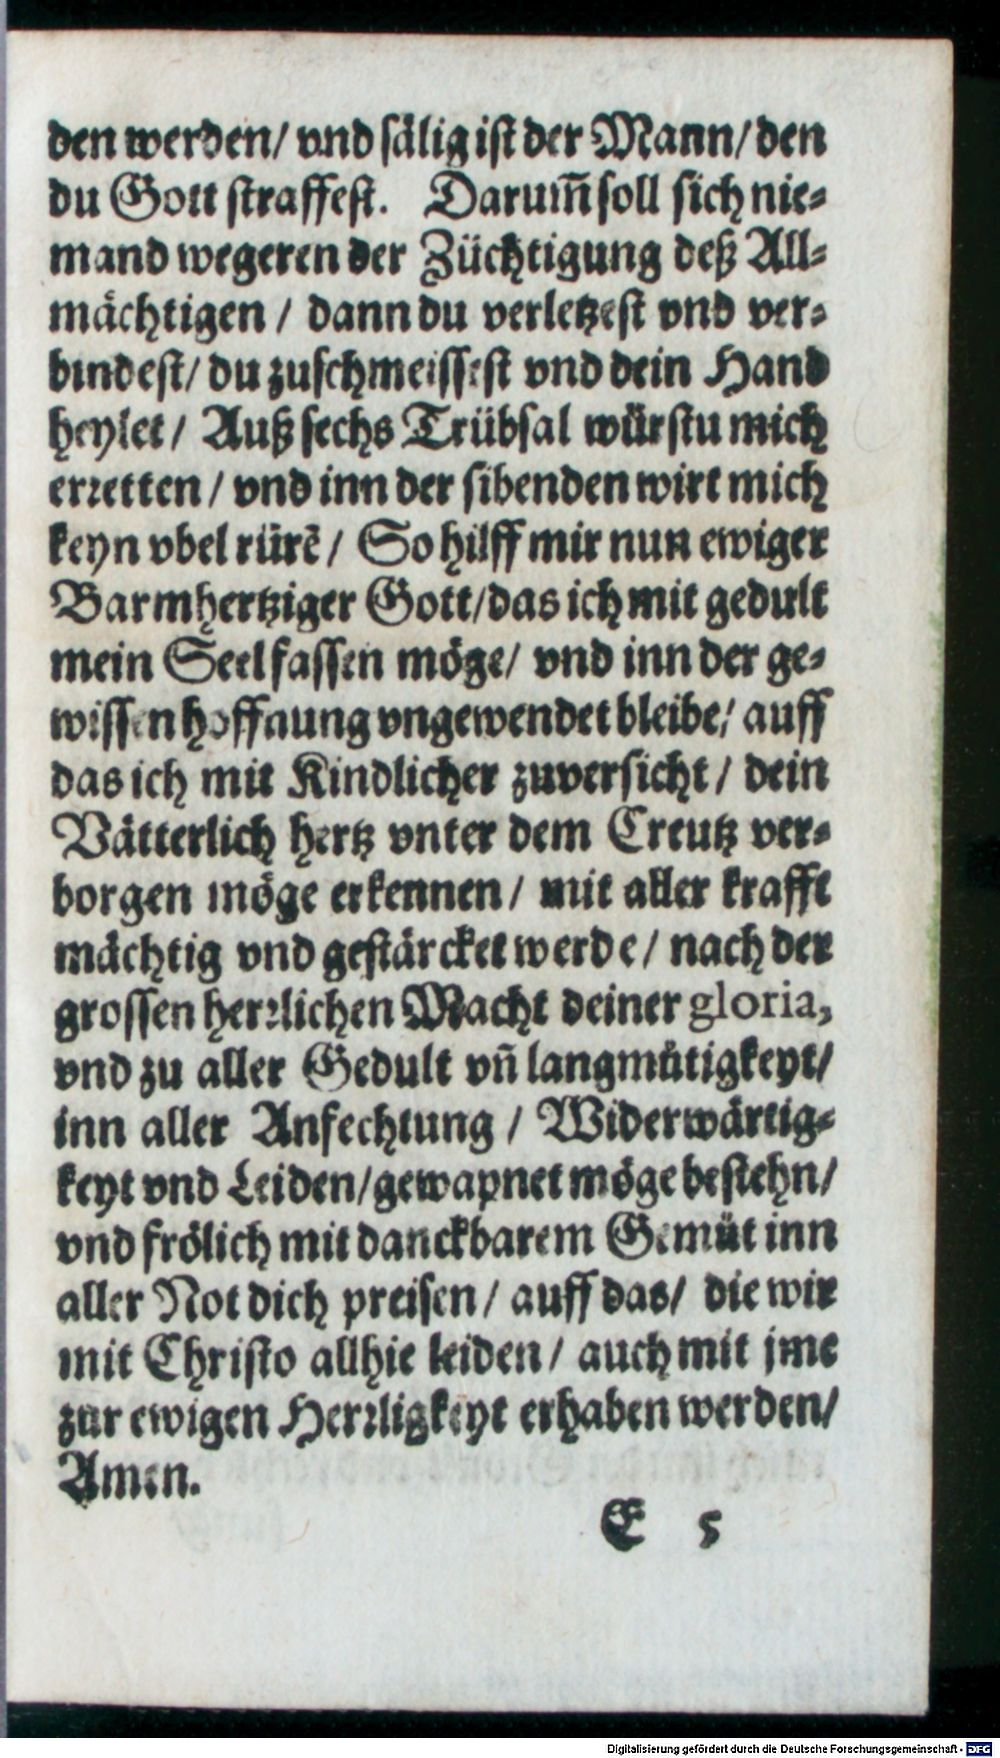 den werden/ vnd sälig ist der Mann/ den
du Gott straffest. Darum̃ soll sich nie-
mand wegeren der Züchtigung deß All-
mächtigen / dann du verletzest vnd ver-
bindest/ du zuschmeissest vnd dein Hand
heylet / Auß sechs Trübsal würstu mich
erꝛetten / vnd inn der sibenden wirt mich
keyn vbel rürẽ / So hilff mir nun ewiger
Barmhertziger Gott/das ich mit gedult
mein Seel fassen möge/ vnd inn der ge-
wissen hoffnung vngewendet bleibe/ auff
das ich mit Kindlicher zuversicht / dein
Vätterlich hertz vnter dem Creutz ver-
borgen möge erkennen / mit aller krafft
mächtig vnd gestärcket werde / nach der
grossen herꝛlichen Macht deiner gloria,
vnd zu aller Gedult vñ langmütigkeyt/
inn aller Anfechtung / Widerwärtig-
keyt vnd Leiden/gewapnet möge bestehn/
vnd frölich mit danckbarem Gemüt inn
aller Not dich preisen / auff das/ die wir
mit Christo allhie leiden / auch mit jme
zur ewigen Herꝛligkeyt erhaben werden/
Amen.
E 5
Digitalisierung gefördert durch die Deutsche Forschungsgemeinschaft - DFG